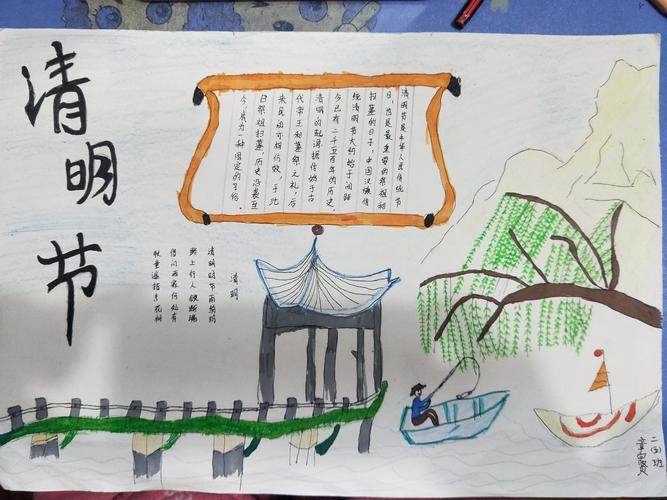 清明节
清明节是中华人民传统节
日,也是最重要的祭祖和
扫墓的日子,中国汉族传
统清明节大约始于周朝
今已有二千五百年的历史,
清明的起源,据传始于古
代帝王和墓祭之礼,后
来民间亦相仿效,于此
日祭祖扫墓,历史沿袭至
今,成为一种固定的习俗。
清明
清明时节雨纷纷
路上行人欲断魂
借问酒家何处有
牧童遥指杏花村
二(5)班